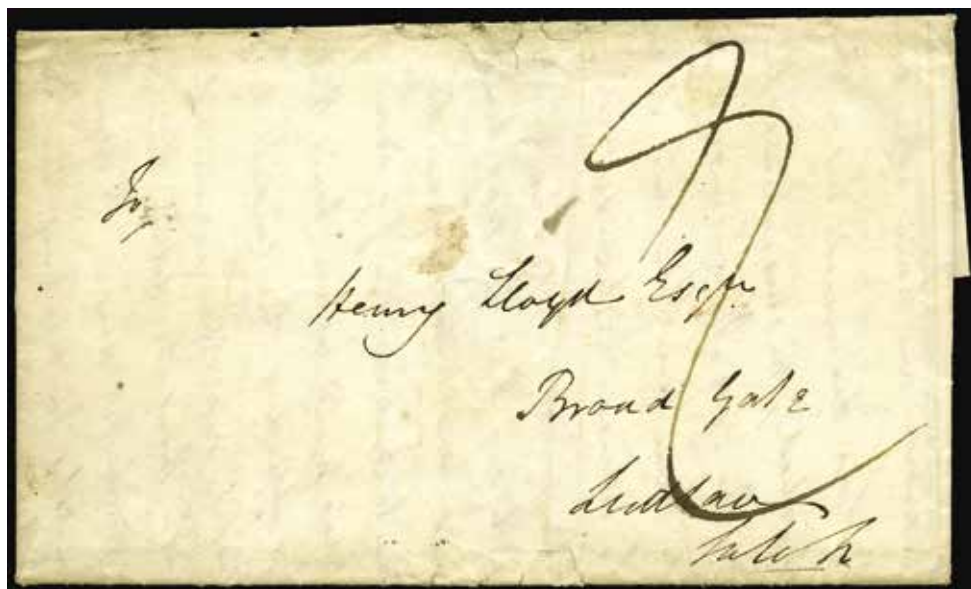 To
Henry Lloyd Esqr.
Broad Gate
Ludlow
Salop